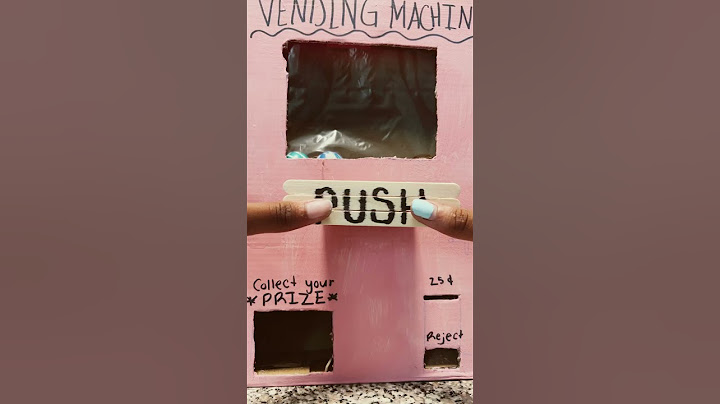 VENDING MACHIN
PUSH
Collect your
*PRIZE*
25¢
Reject